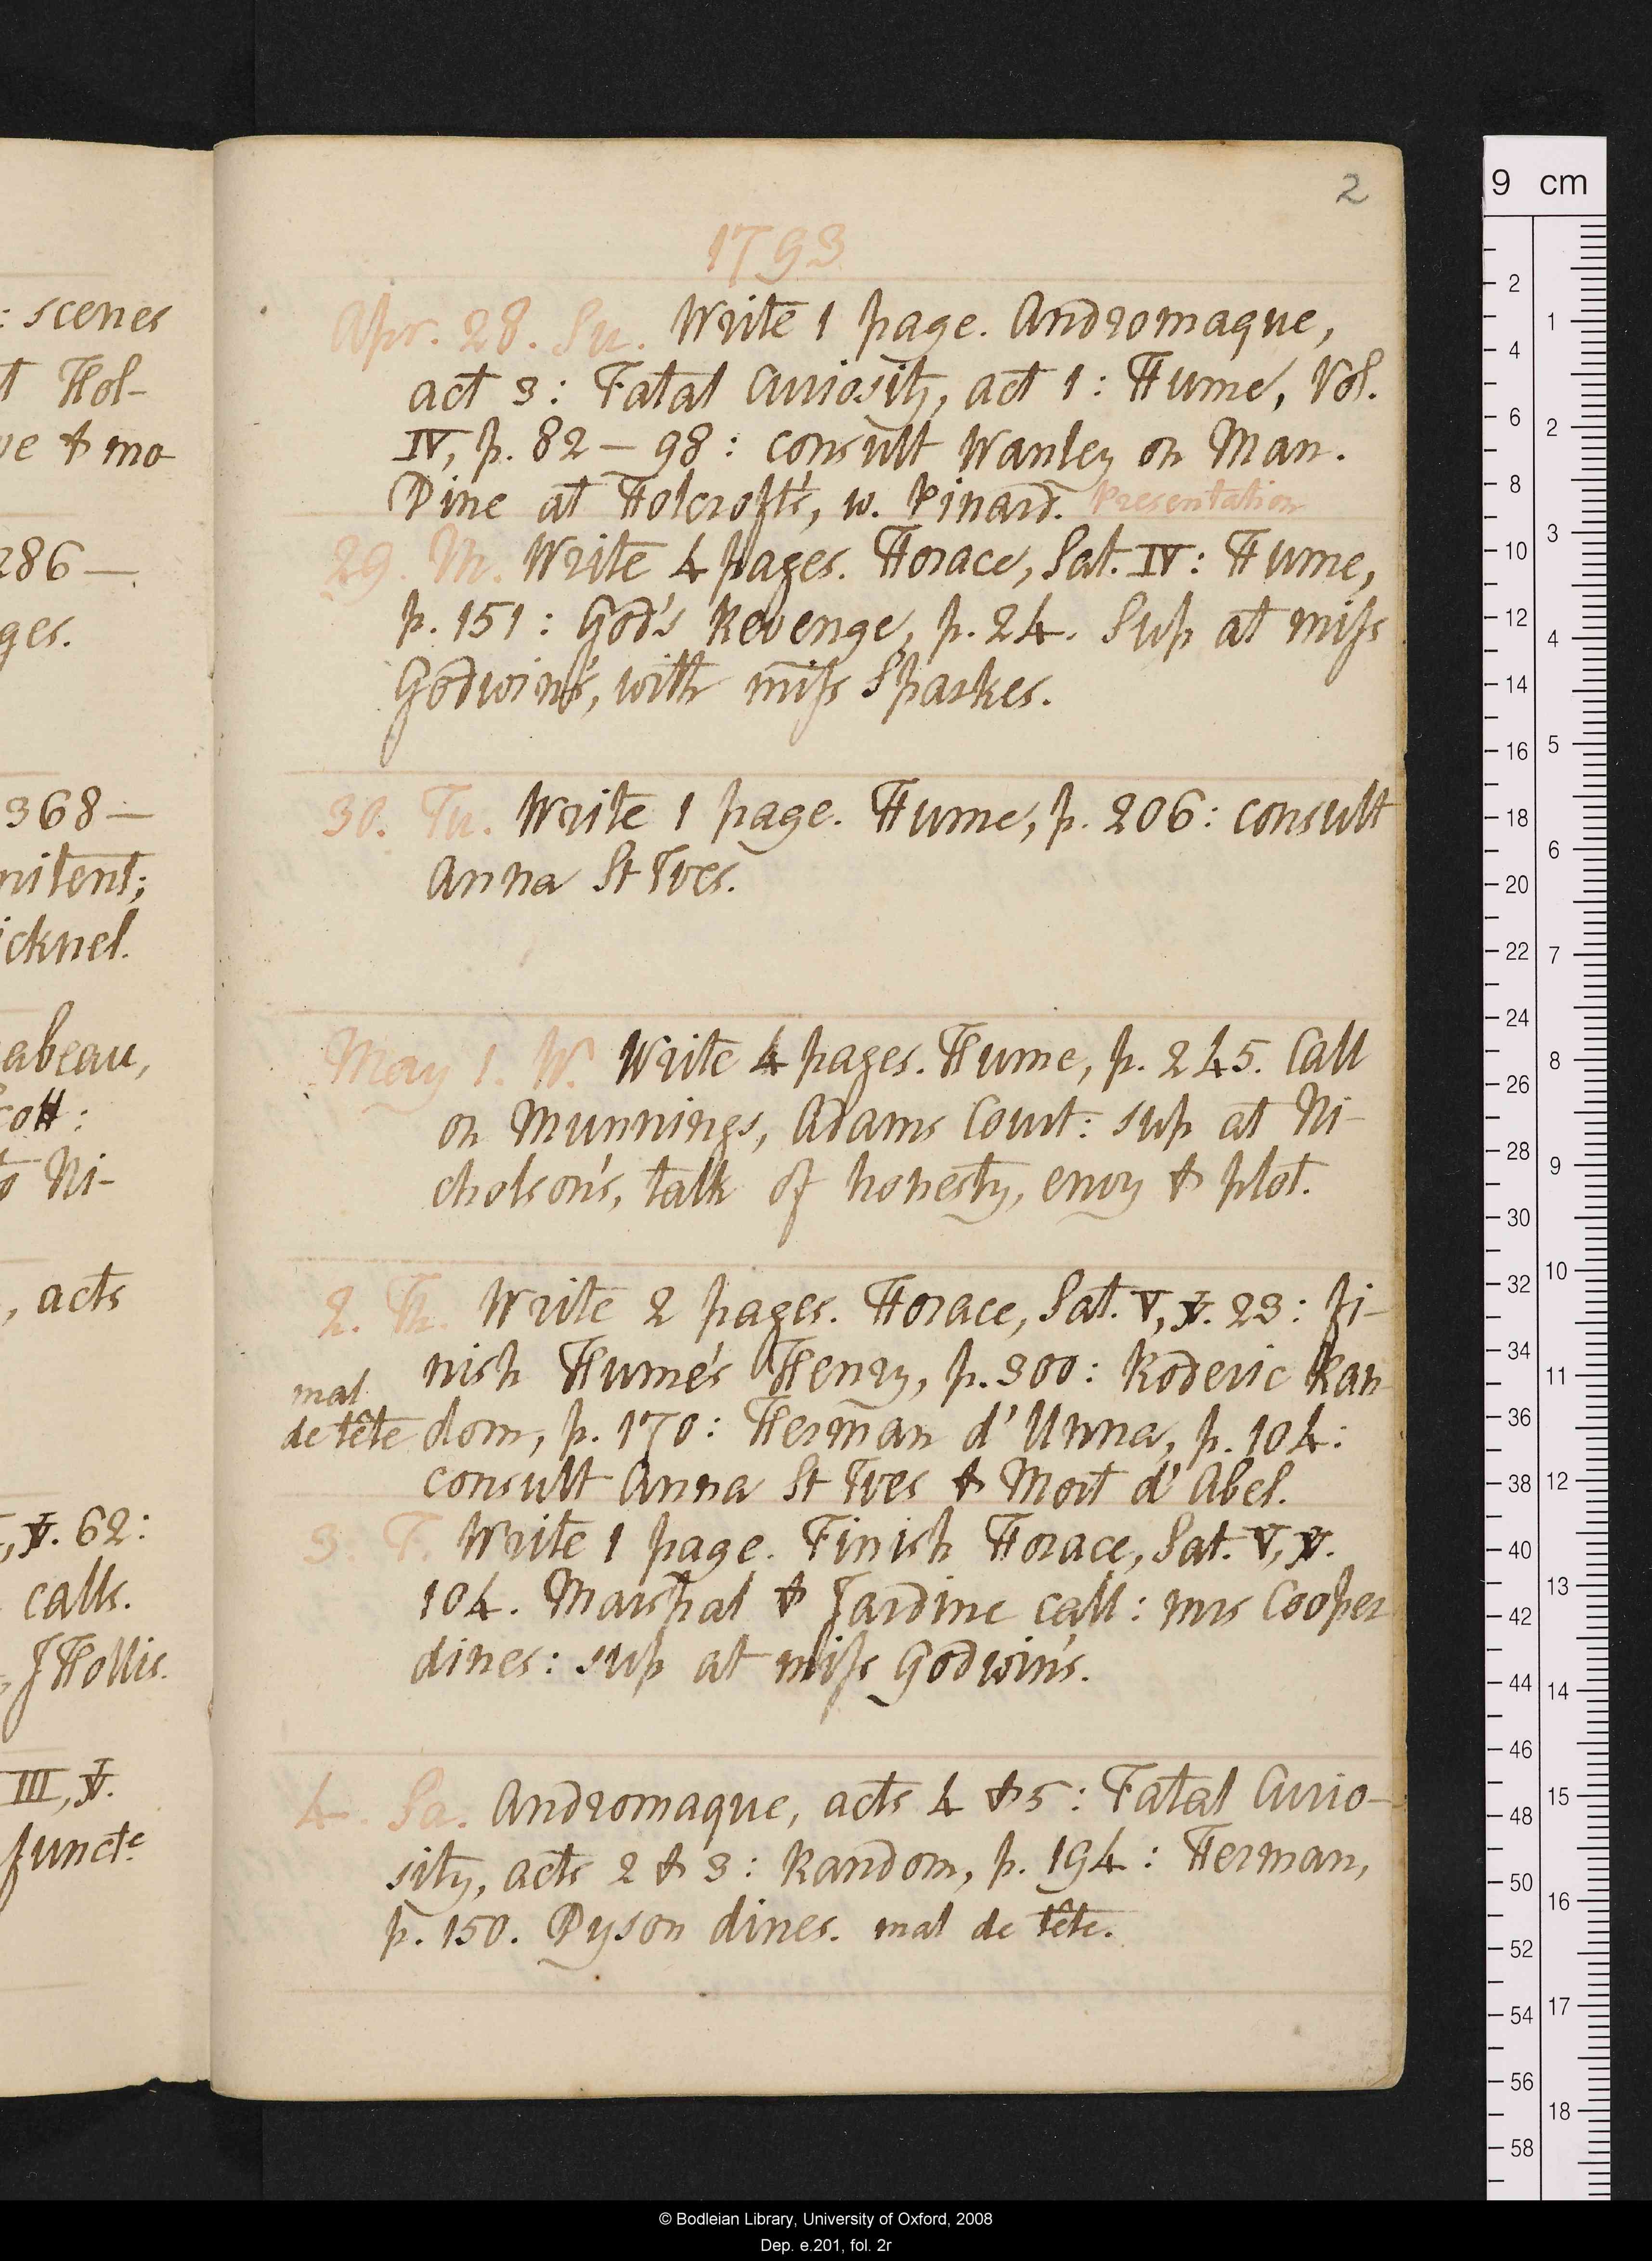 : scenes
t Hol-
ve & mo
286 —
ges.
368 —
nitent;
icknel.
abeau,
cott:
o Ni-
, acts
, v. 62:
calls.
, J Hollis.
III, v.
functe
2
1793
Apr. 28. Su. Write 1 page. Andromaque,
act 3: Fatal Curiosity, act 1: Hume, Vol.
IV, p. 82 — 98: consult Wanley on Man.
Dine at Holcroft's, w. Pinard. Presentation
29. M. Write 4 pages. Horace, Sat. IV: Hume,
p. 151: God's Revenge, p. 24. Sup at miſs
Godwin's, with miſs Sparkes.
30. Tu. Write 1 page. Hume, p. 206: consult
Anna St Ives.
May 1. W. Write 4 pages. Hume, p. 245. Call
on Munnings, Adams Court: sup at Ni-
cholson's, talk of honesty, envy & plot.
2. Th. Write 2 pages. Horace, Sat. V, v. 23: fi-
nish Hume's Henry, p. 300: Roderic Ran
mal
de tête dom, p. 170: Herman d'Unna, p. 104:
consult Anna St Ives & Mort d'Abel.
3. F. Write 1 page. Finish Horace, Sat. V, v.
104. Marshal & Jardine call: mrs Cooper
dines: sup at miſs Godwin's.
4. Sa. Andromaque, acts 4 & 5: Fatal Curio-
sity, acts 2 & 3: Random, p. 194: Herman,
p. 150. Dyson dines. mal de tête.
9 cm
2
4
6
8
10
12
14
16
18
20
22
24
26
28
30
32
34
36
38
40
42
44
46
48
50
52
54
56
58
1
2
3
4
5
6
7
8
9
10
11
12
13
14
15
16
17
18
© Bodleian Library, University of Oxford, 2008
Dep. e.201, fol. 2r